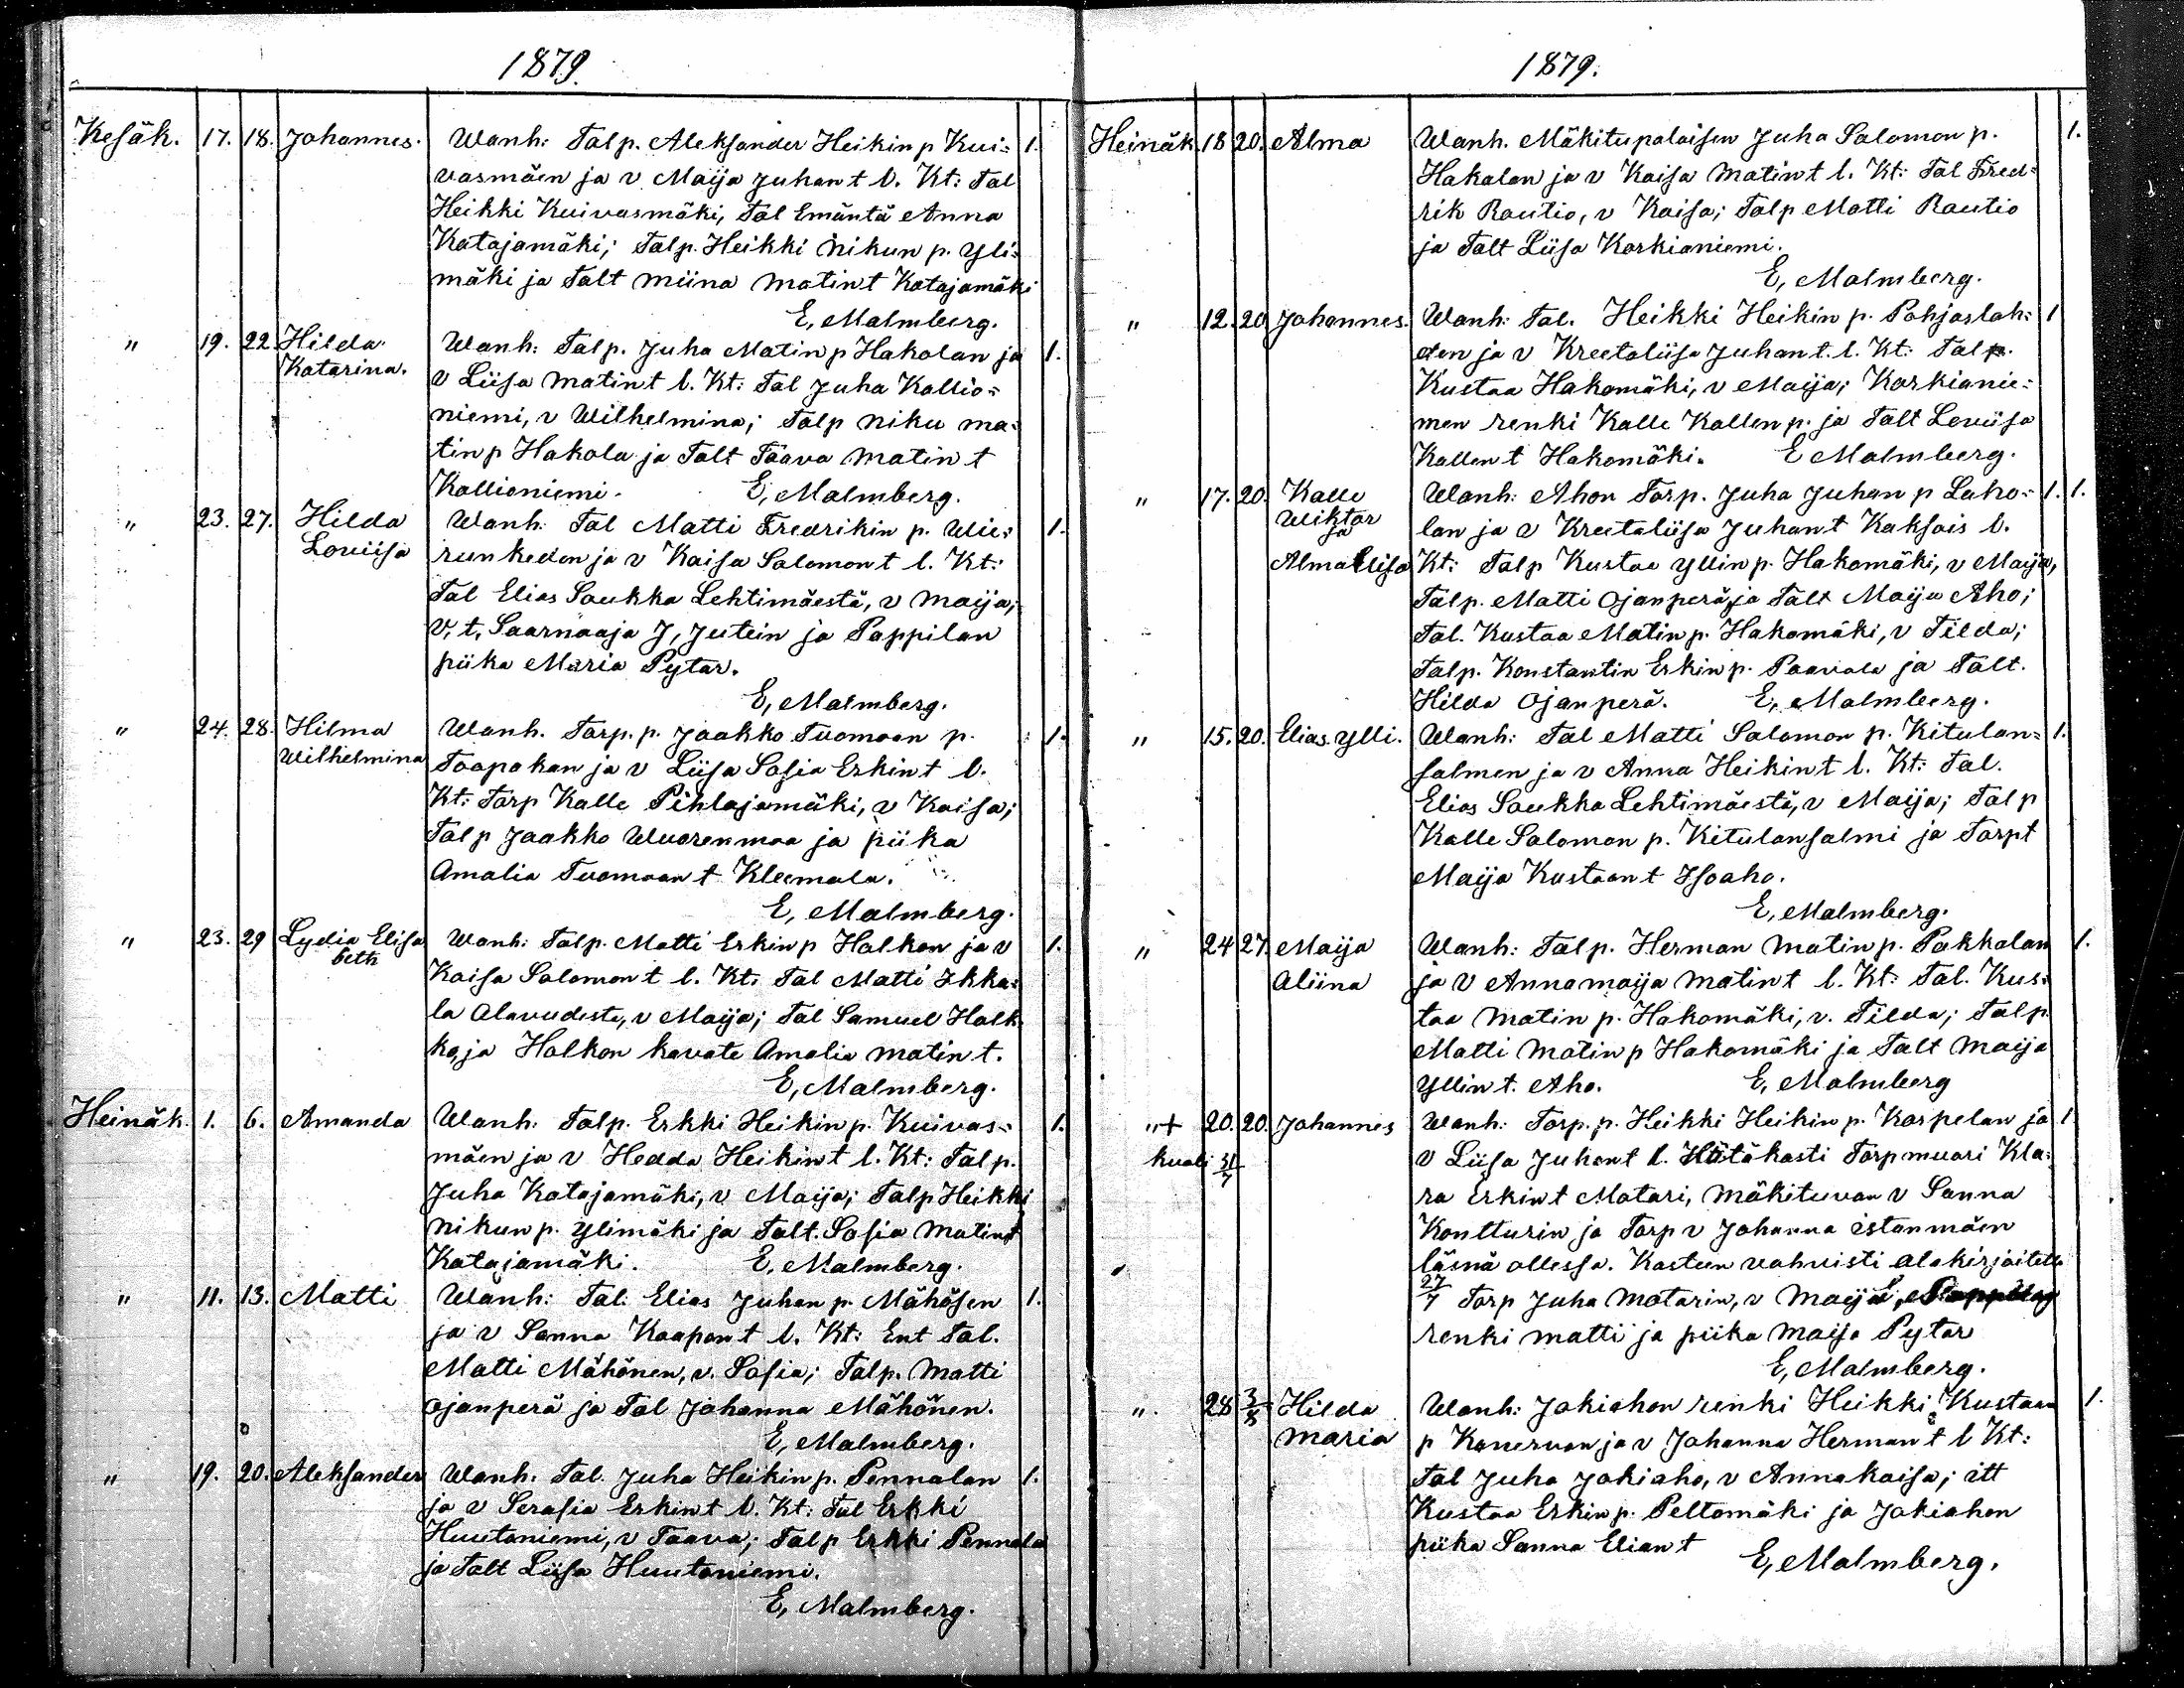 1879.
Kesäk. 17. 18. Johannes. Wanh: Talp. Aleksander Heikin p Kui= 1.
vasmäen ja v Maija Juhan t l. Kt: Tal
Heikki Kuivasmäki, Tal Emäntä Anna
Katajamäki; Talp. Heikki Nikun p. Yli=
mäki ja Talt Miina Matin t Katajamäki
E, Malmberg.
" 19. 22 Hilda Wanh: Talp. Juha Matin p Hakolan ja 1.
Katarina. v Liisa Matin t l. Kt: Tal Juha Kallio=
niemi, v Wilhelmina; Talp Niku Ma=
tin p Hakola ja Talt Taava Matin t
Kallioniemi. E, Malmberg.
" 23. 27. Hilda Wanh: Tal Matti Fredrikin p. Wie= 1.
Loviisa runkeden ja v Kaisa Salomon t l. Kt:
Tal Elias Saukko Lehtimäestä, v Maija;
V, t, Saarnaaja J, Jutein ja Pappilan
piika Maria Pytar.
E, Malmberg.
" 24. 28. Hilma Wanh. Torp. p. Jaakko Tuomaan p. 1.
Wilhelmina Taapakan ja v Liisa Sofia Erkin t l.
Kt: Torp Kalle Pihlajamäki, v Kaisa;
Talp Jaakko Wuorenmaa ja piika
Amalia Tuomaan t Kleemala.
E, Malmberg.
" 23. 29 Lydia Elisa Wanh: Talp. Matti Erkin p Halkon ja v 1.
beth Kaisa Salomon t l. Kt: Tal Matti Ikka=
la Alavudesta, v Maija; Tal Samuel Halk
ko ja Halkon kavate Amalia Matin t.
E, Malmberg.
Heinäk. 1. 6. Amanda Wanh: Talp. Erkki Heikin p. Kuivas= 1.
mäen ja v Hedda Heikin t l. Kt: Talp.
Juha Katajamäki, v Maija; Talp Heikki
Nikun p. Ylimäki ja Talt. Sofia Matin t
Katajamäki. E, Malmberg.
" 11. 13. Matti Wanh: Tal. Elias Juhan p. Mähösen 1.
ja v Sanna Kaapon t l. Kt: Ent Tal.
Matti Mähönen, v. Sofia; Talp. Matti
Ojanperä ja Tal Johanna Mähönen.
E, Malmberg.
" 19. 20. Aleksander Wanh: Tal. Juha Heikin p. Pennalan 1.
ja v Serafia Erkin t l. Kt: Tal Erkki
Huutoniemi, v Taava; Talp Erkki Pennala
ja Talt Liisa Huutoniemi.
E, Malmberg.
1879.
Heinäk 18 20. Alma Wanh. Mäkitupalaisen Juha Salomon p. 1.
Hakalan ja v Kaisa Matin t l. Kt: Tal Fred=
rik Rautio, v Kaisa; Talp Matti Rautio
ja Talt Liisa Korkianiemi.
E, Malmberg.
" 12. 20 Johannes. Wanh: Tal. Heikki Heikin p. Pohjaslah= 1
den ja v Kreetaliisa Juhan t. l. Kt: Talp.
Kustaa Hakomäki, v Maija; Korkianie=
men renki Kalle Kallen p. ja Talt Loviisa
Kallen t Hakomäki. E Malmberg.
" 17. 20. Kalle Wanh: Ahon Torp. Juha Juhan p Laho= 1. 1.
Wiktor lan ja v Kreetaliisa Juhan t Kaksois l.
ja
Alma Elisa Kt: Talp Kustaa Yllin p. Hakomäki, v Maija,
Talp. Matti Ojanperä, ja Talt Maija Aho;
Tal. Kustaa Matin p. Hakomäki, v Tilda;
Talp. Konstantin Erkin p. Paavola ja Talt.
Hilda Ojanperä. E, Malmberg.
" 15. 20. Elias Ylli. Wanh: Tal Matti Salomon p. Kitulan= 1.
salmen ja v Anna Heikin t l. Kt: Tal.
Elias Saukko Lehtimäestä, v Maija; Talp
Kalle Salomon p. Kitulansalmi ja Torpt
Maija Kustaan t Isoaho.
E, Malmberg.
" 24 27. Maija Wanh: Talp. Herman Matin p. Pakkalan 1.
Aliina ja v Annamaija Matin t l. Kt: Tal. Kus=
taa Matin p. Hakomäki, v. Tilda; Talp.
Matti Matin p Hakomäki ja Talt Maija
Yllin t. Aho. E, Malmberg
"+ 20. 20. Johannes Wanh: Torp. p. Heikki Heikin p. Karpelan ja 1
kuoli 31/7 v Liisa Juhan t l. Hätäkasti Torpmuori Kla=
ra Erkin t Matari, Mäkituvan v Sanna
Kontturin ja Torp v Johanna Istanmäen
läsnä ollessa. Kasteen vahvisti alakirjoitettu
27/7 Torp Juha Matarin, v Maija,
renki Matti ja piika Maija Pytar
E, Malmberg.
". 28 3/8 Hilda Wanh: Jokiahon renki Heikki Kustaan 1.
Maria p Konervan ja v Johanna Herman t l Kt:
Tal Juha Jokiaho, v Annakaisa; itt
Kustaa Erkin p. Peltomäki ja Jokiahon
piika Sanna Elian t
E, Malmberg.